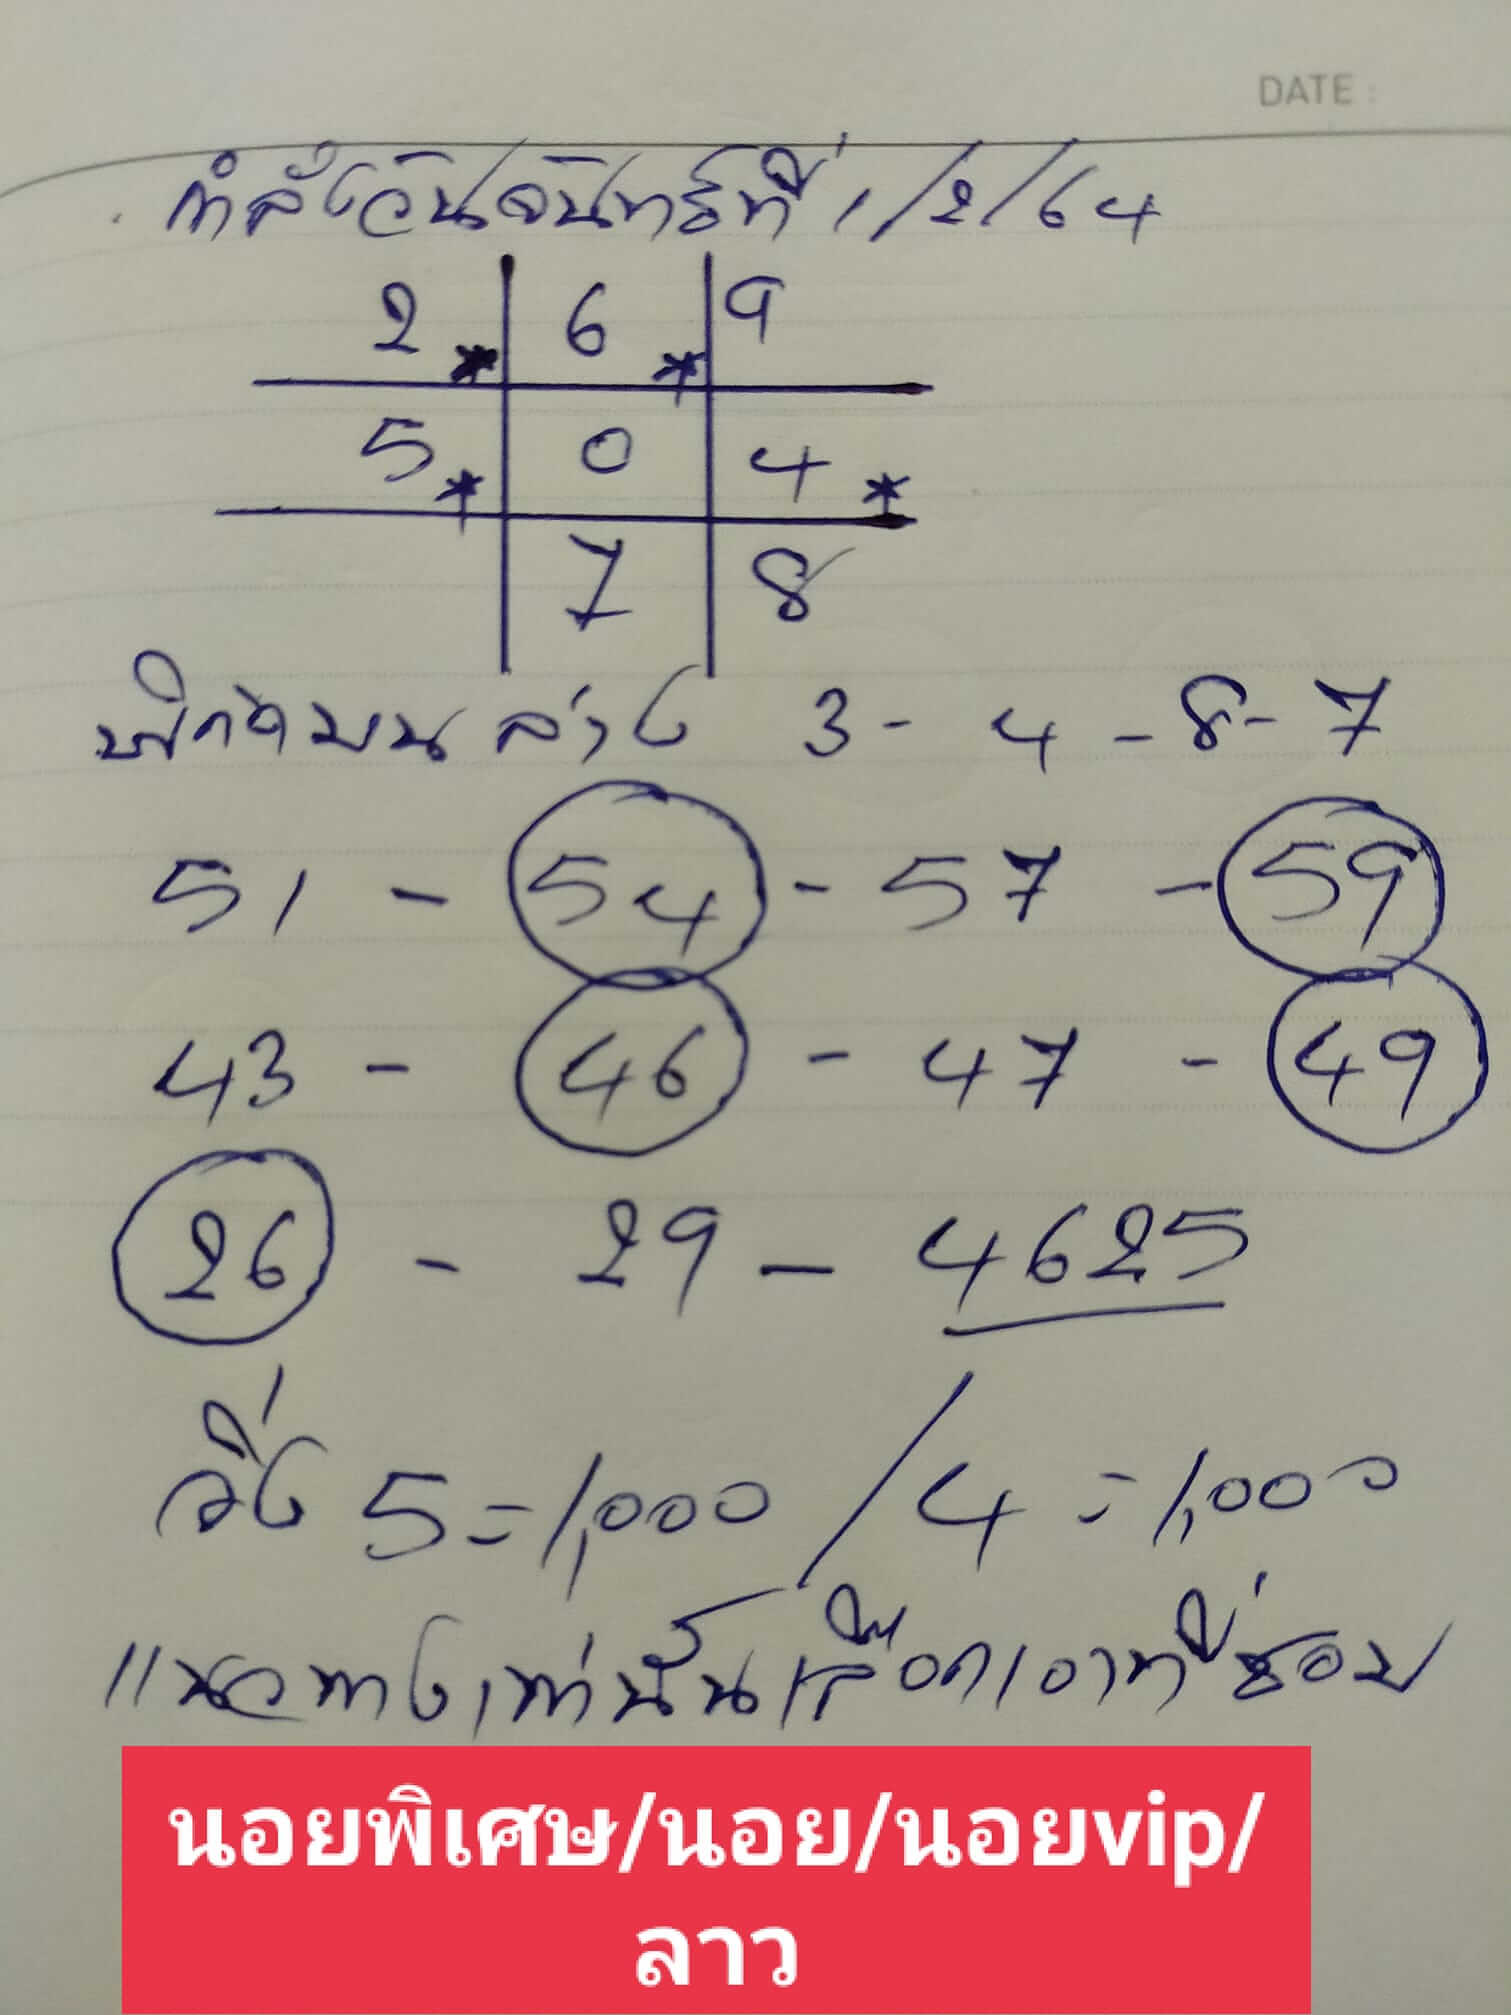 DATE :
กำลังวันจันทร์ที่ 1/2/64
2* 6* 9
5* 0 4*
7 8
พิกัดบน ล่าง 3 - 4 - 8 - 7
51 - 54 - 57 - 59
43 - 46 - 47 - 49
26 - 29 - 4625
วิ่ง 5 = 1,000 / 4 = 1,000
แนวทางเท่านั้นเลือกเอาที่ชอบ
นอยพิเศษ/นอย/นอยvip/
ลาว